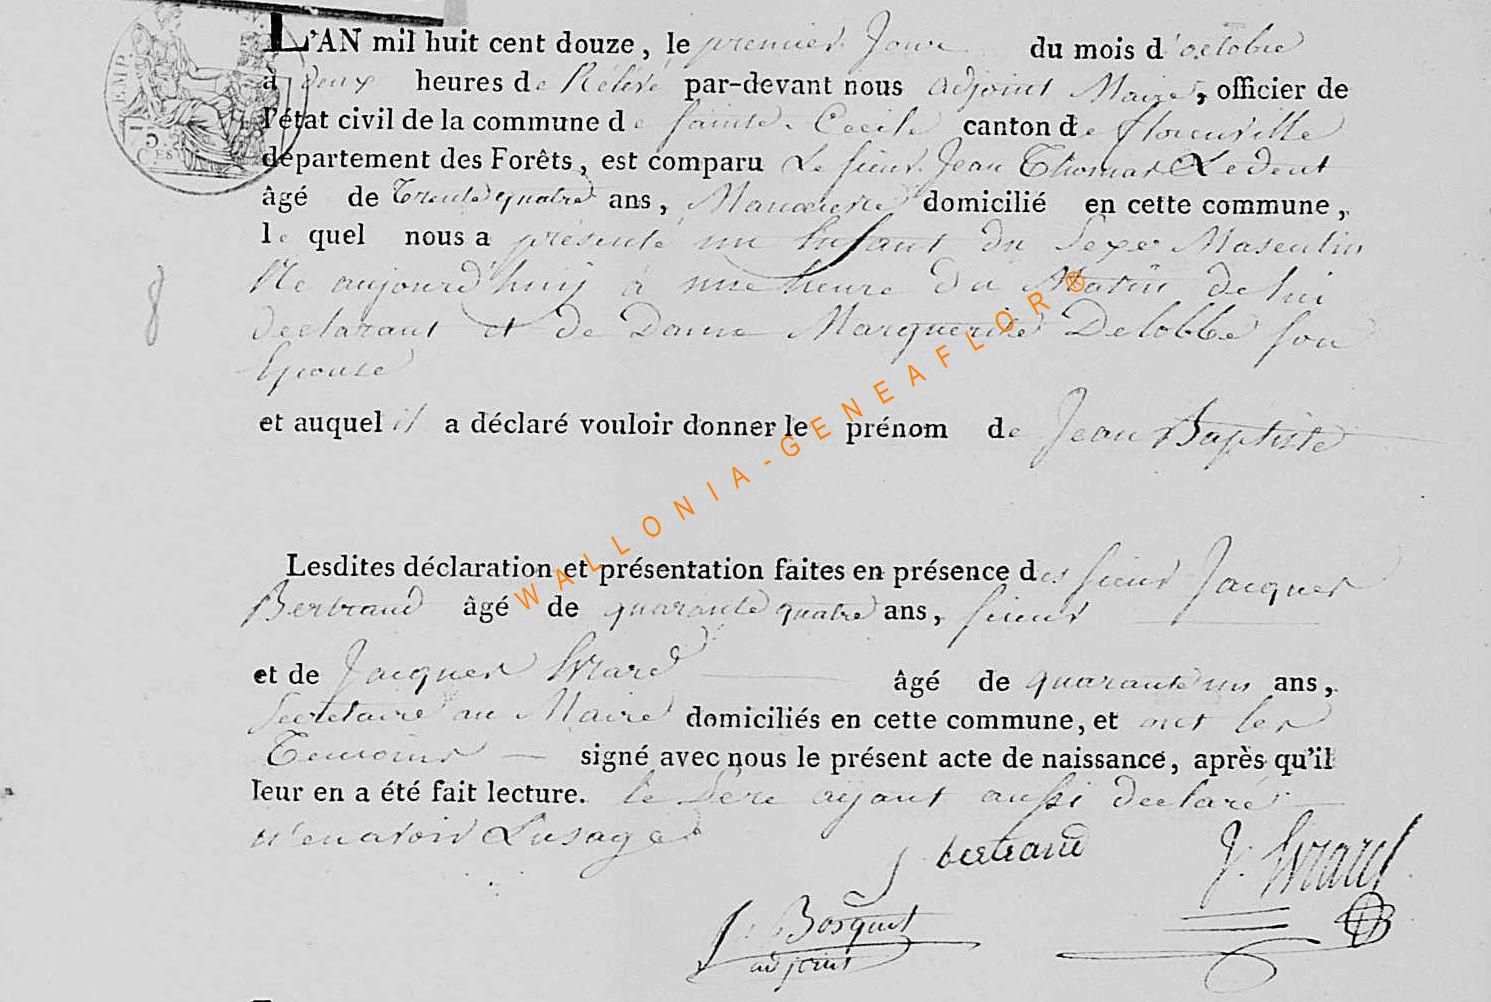 EMP.
75
CES
L'AN mil huit cent douze, le premier Jour du mois d'octobre
à deux heures de Relevé par-devant nous adjoint Maire, officier de
l'état civil de la commune de Sainte Cecile canton de florenville
département des Forêts, est comparu Le Sieur Jean Thomas Ledent
âgé de Trente quatre ans, Manœuvre domicilié en cette commune,
le quel nous a présenté un Enfant du Sexe Masculin
Né aujourd'huij à une heure du Matin de lui
declarant et de Dame Marguerite Delobbe son
Epouse
et auquel il a déclaré vouloir donner le prénom de Jean Baptiste
Lesdites déclaration et présentation faites en présence des sieur Jacques
Bertrand âgé de quarante quatre ans, sieur
et de Jacques Evrard âgé de quarante un ans,
Secretaire au Maire domiciliés en cette commune, et ont les
Temoins signé avec nous le présent acte de naissance, après qu'il
leur en a été fait lecture. le Pere aÿant aussi declaré
n'en avoir Lusage
J bertrand
J. Evrard
J. Bosquet
adjoint
WALLONIA-GENEAFLOR®